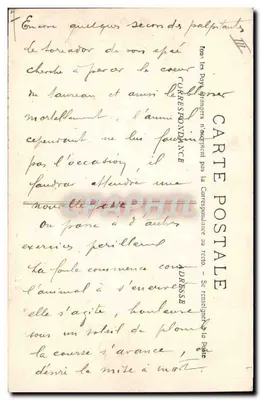 Encore quelques secondes palpitantes
III
le toreador de son epée
cherche à percer le coeur
du taureau et ainsi le blesser
mortellement, l'animal
cependant ne lui fournit
pas l'occasion, il
faudra attendre une
nouvelle
On passe à d'autres
exercices périlleux
La foule commence comme
l'animal à s'enerver
elle s'agite, houleuse
sous un soleil de plomb
la course s'avance, on
désire la mise à mort
CARTE POSTALE
Tous les Pays étrangers n'acceptent pas la Correspondance au recto. - Se renseigner à la Poste
CORRESPONDANCE
ADRESSE
CPAPHIL